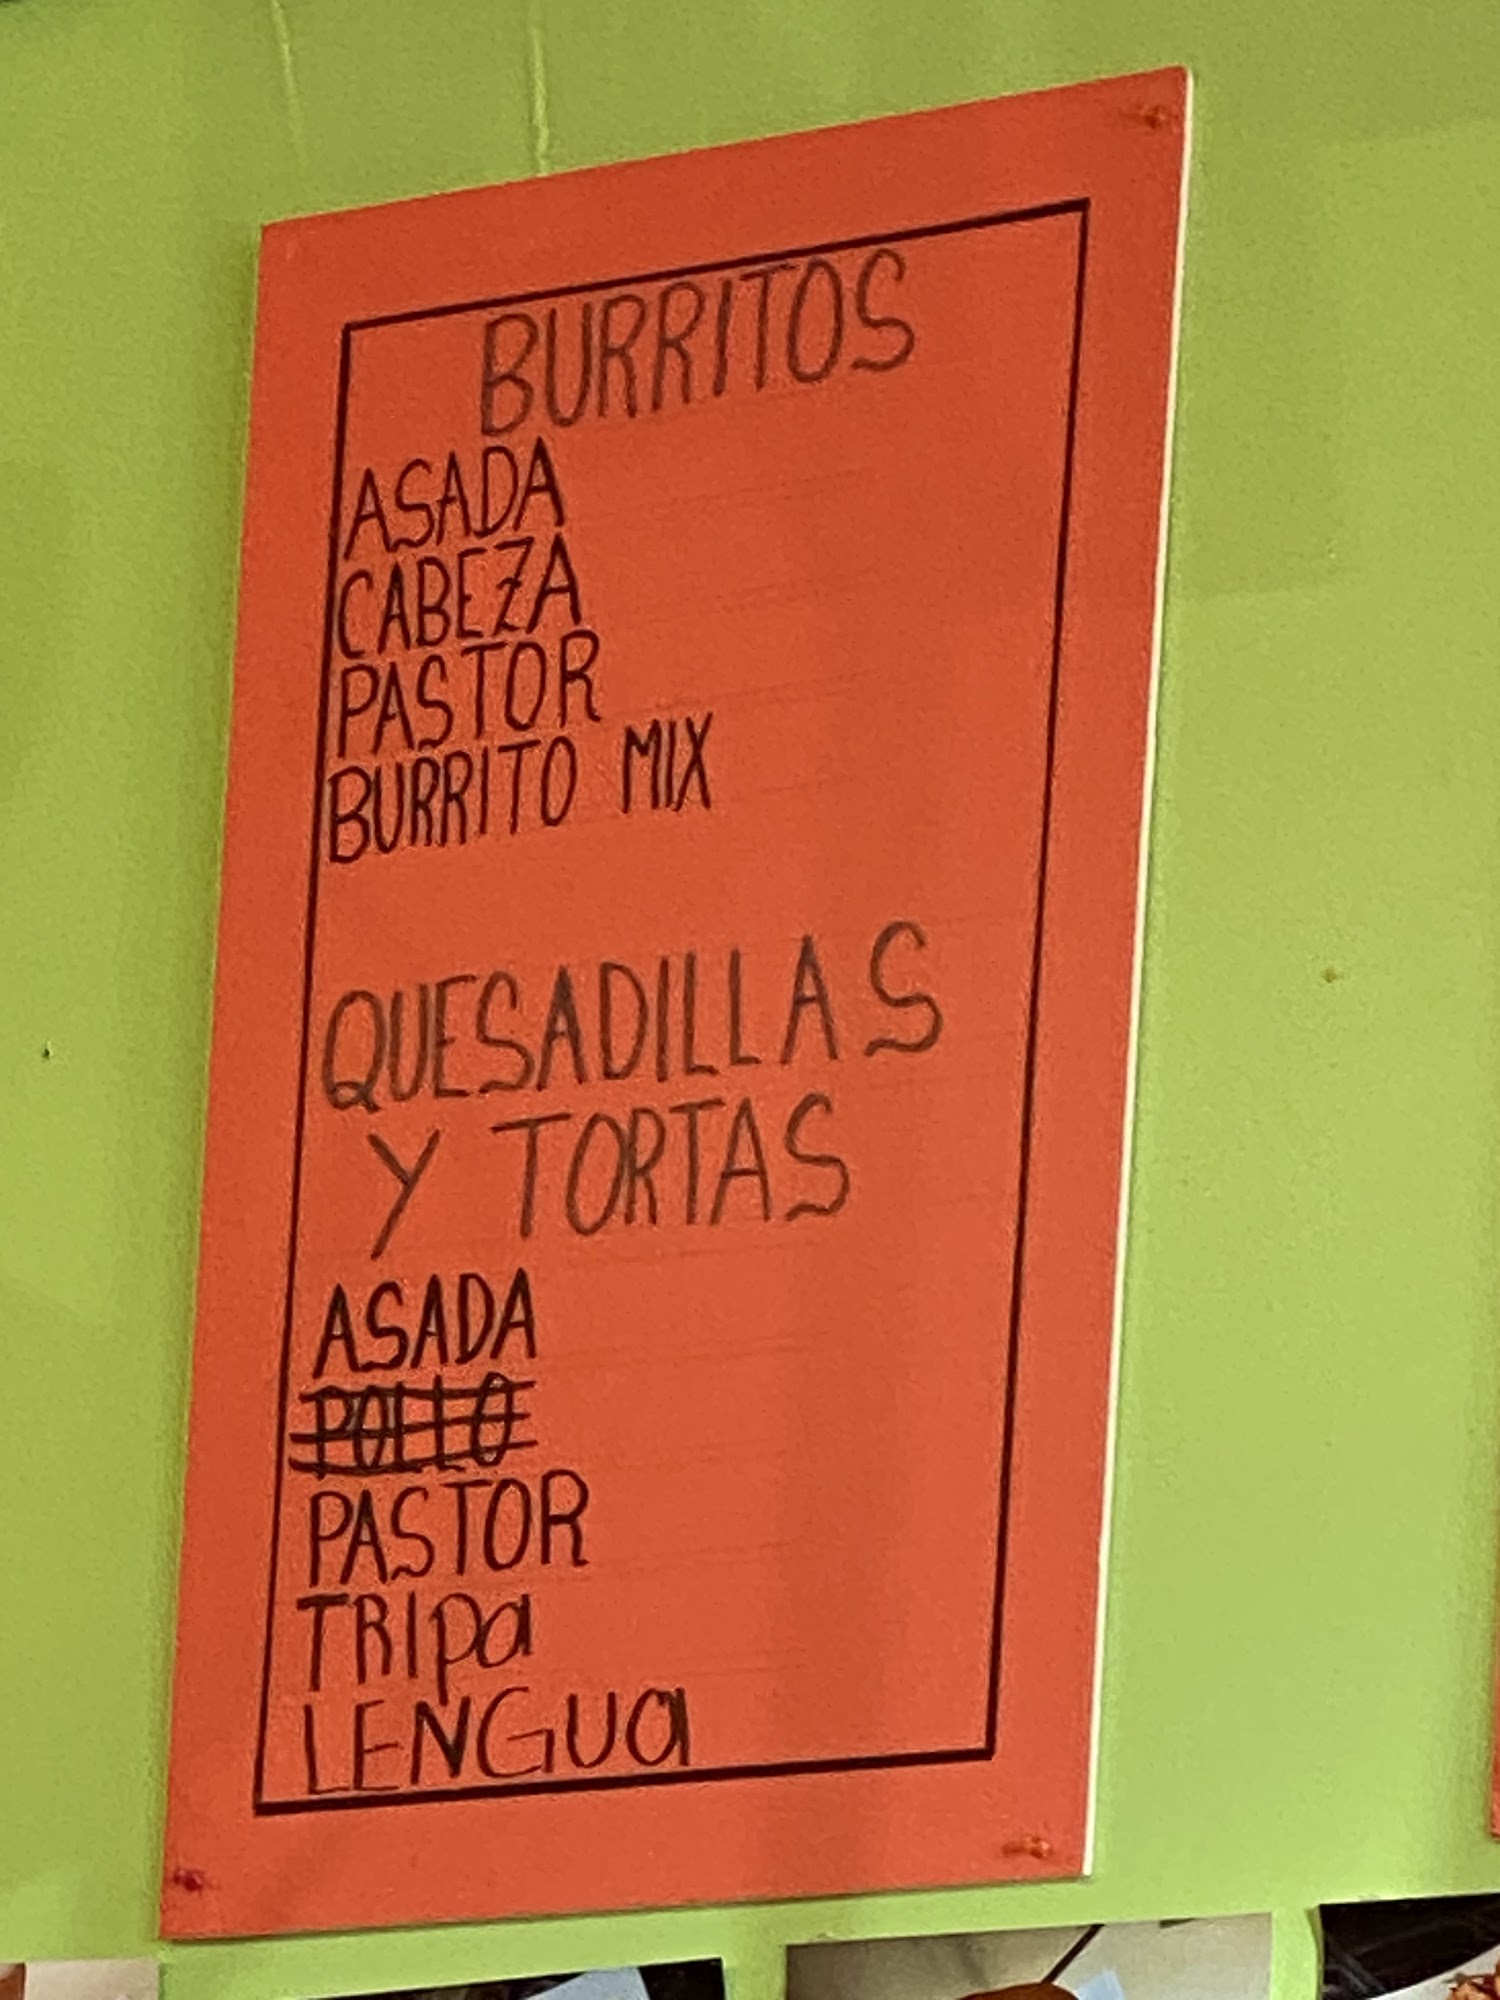 BURRITOS
ASADA
CABEZA
PASTOR
BURRITO MIX
QUESADILLAS
Y TORTAS
ASADA
POLLO
PASTOR
TRIpa
LENGUa